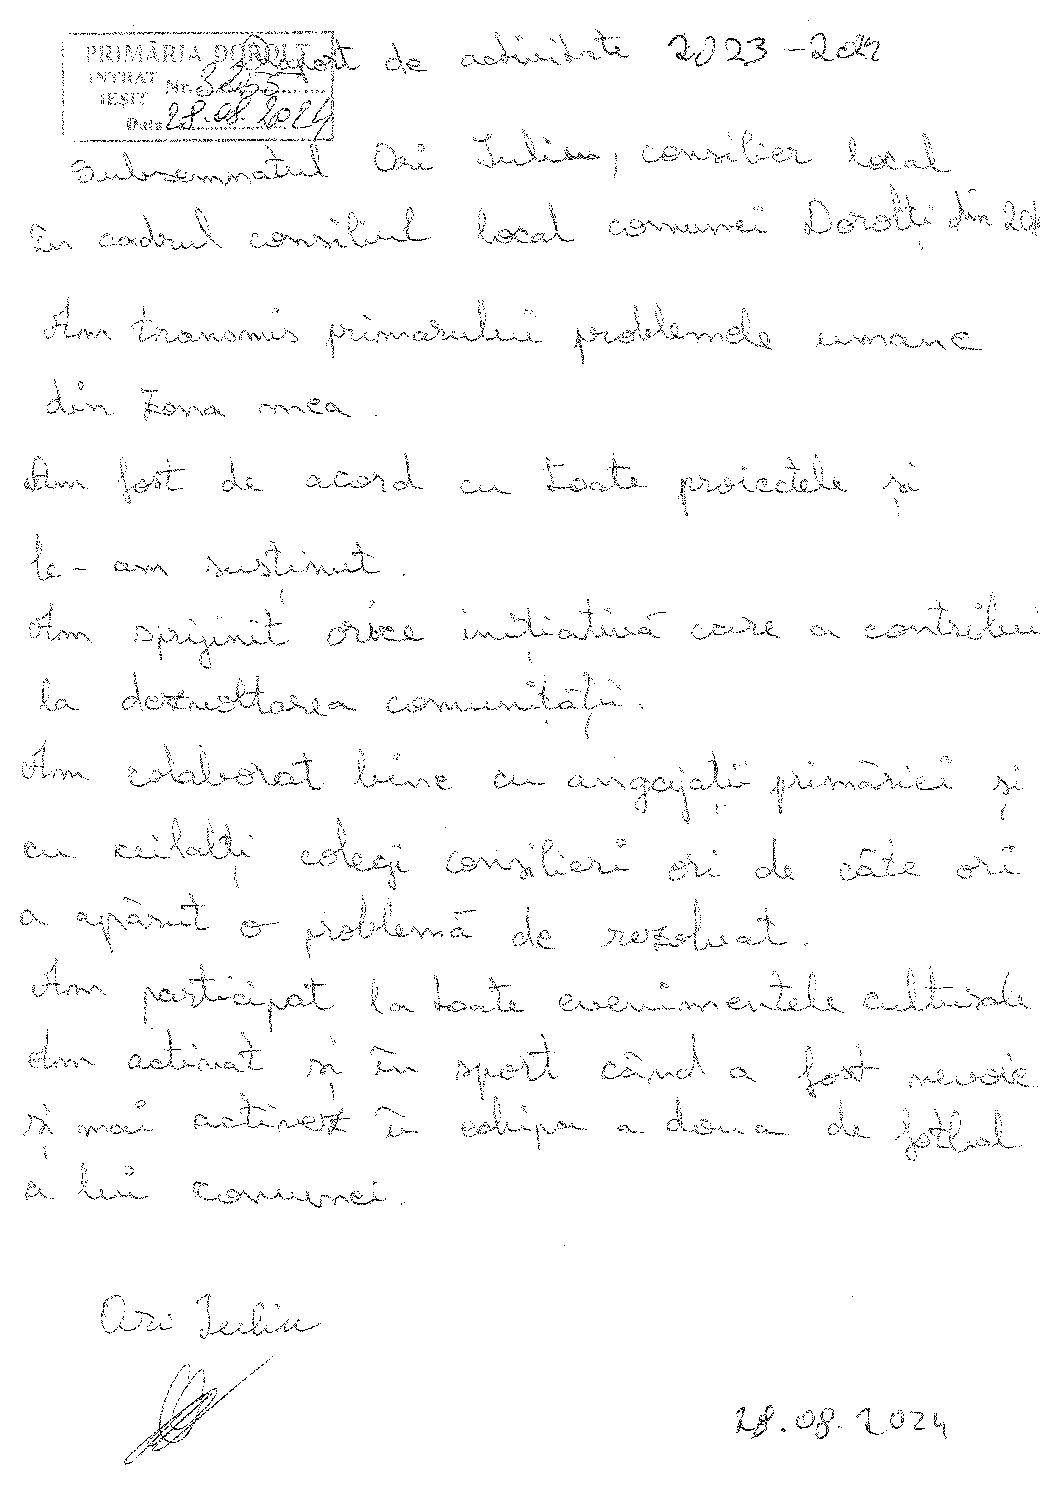 PRIMĂRIA DOROLȚ
INTRAT
IEȘIT Nr. 3255
Data 28.08.2024
Raport de activitate 2023-2024
Subsemnatul Ori Iuliu, consilier local
în cadrul consiliul local comunei Dorolți din
Am transmis primarului problemele umane
din zona mea.
Am fost de acord cu toate proiectele și
le-am susținut.
Am sprijinit orice inițiativă care a contribui
la dezvoltarea comunității.
Am colaborat bine cu angajații primăriei și
cu ceilalți colegi consilieri ori de câte ori
a apărut o problemă de rezolvat.
Am participat la toate evenimentele culturale
Am activat și în sport când a fost nevoie
și mai activez în echipa a doua de fotbal
a lui comunei.
Ori Iuliu
28.08.2024